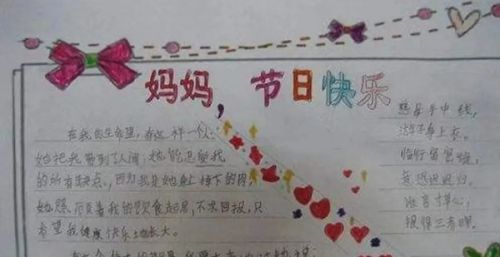 妈妈，节日快乐
在我的生命里，有这样一个人：
她把我带到了人间，她能包容我
的所有缺点，因为我是她身上掉下的肉，
她照顾着我的饮食起居，不求回报，只
希望我健康快乐地成长。
慈母手中线，
游子身上衣。
临行密密缝，
意恐迟迟归。
谁言寸草心，
报得三春晖。